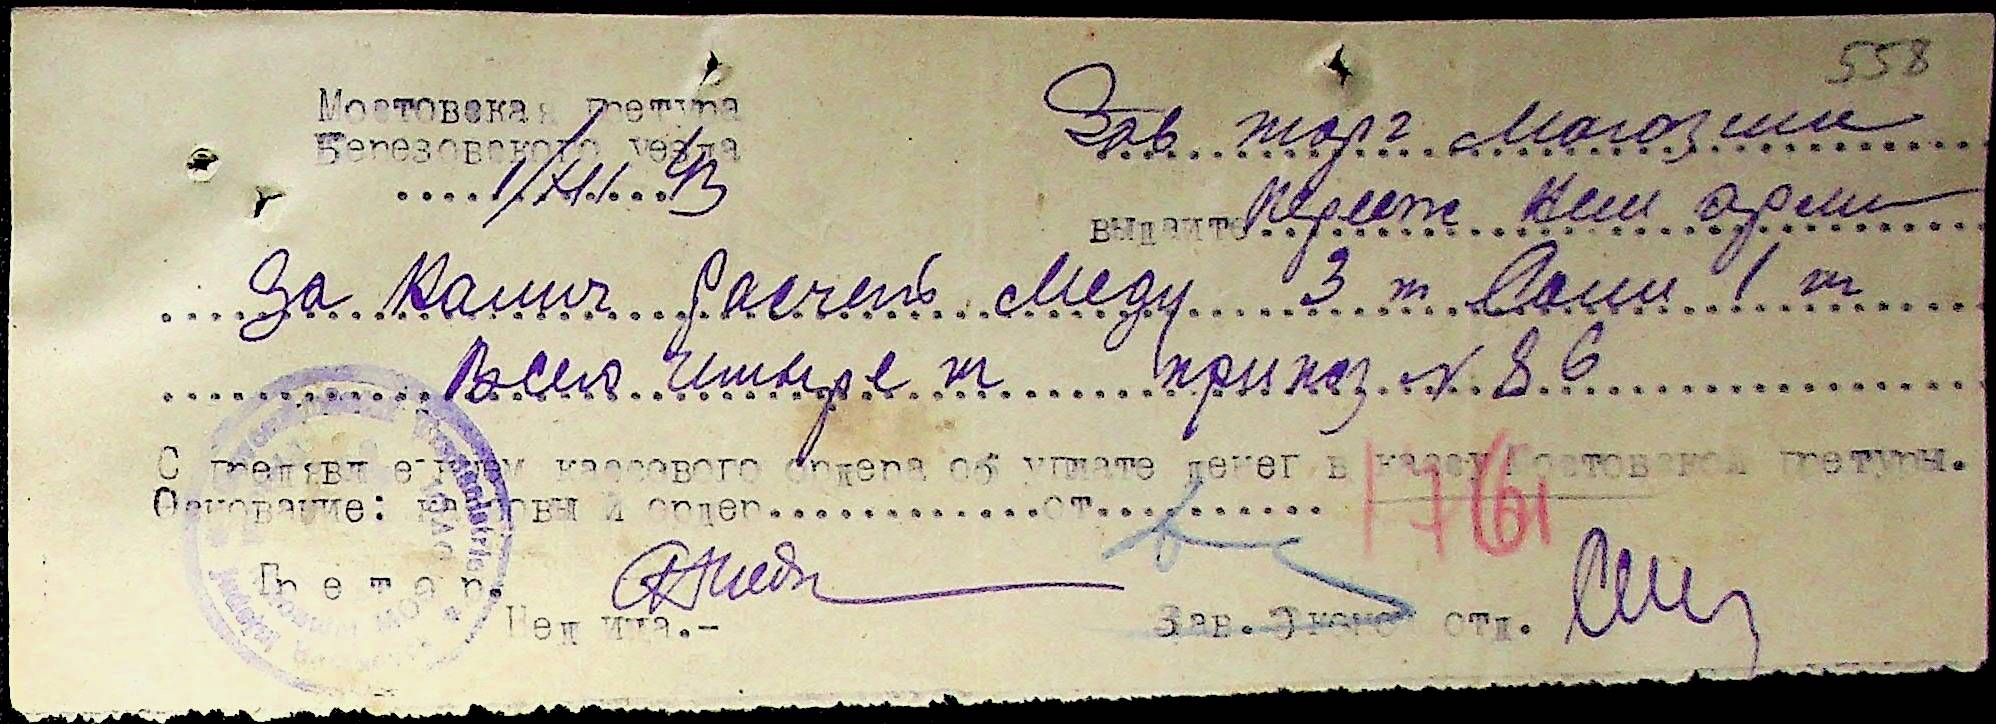 558
Мостовская претура
Березовского уезда
1/XII 43
Зав торг Магозини
выдайте
За Налич Расчет Меду 3 т Соли 1 т
Всего четыре т приказ № 86
С предявлением кассового ордера об уплате денег в кассу Мостовской претуры.
Основание: кассовый ордер.............от...........
1761
Претор.
Недлица.-
Зав. Эконом отд.